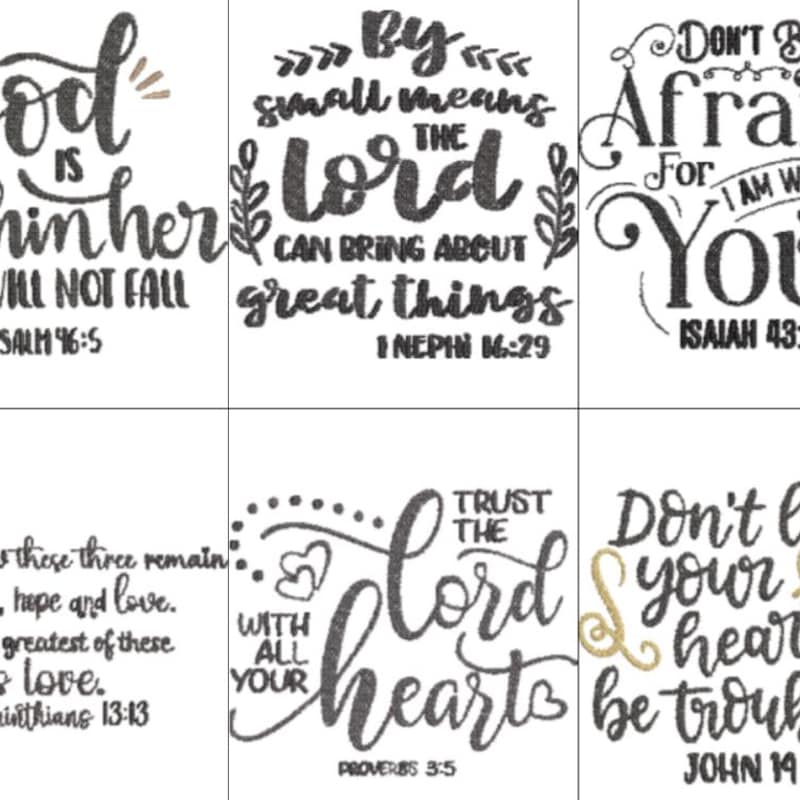 od
IS
hin her
WILL NOT FALL
SALM 46:5
By
small means
THE
Lord
CAN BRING ABOUT
great things
1 NEPHI 16:29
DON'T B
Afrai
For
I AM W
You
ISAIAH 43:
these three remain
, hope and love.
greatest of these
s love.
inthians 13:13
TRUST
THE
Lord
WITH
ALL
YOUR
heart
PROVERBS 3:5
Don't l
your
hear
be troub
JOHN 14